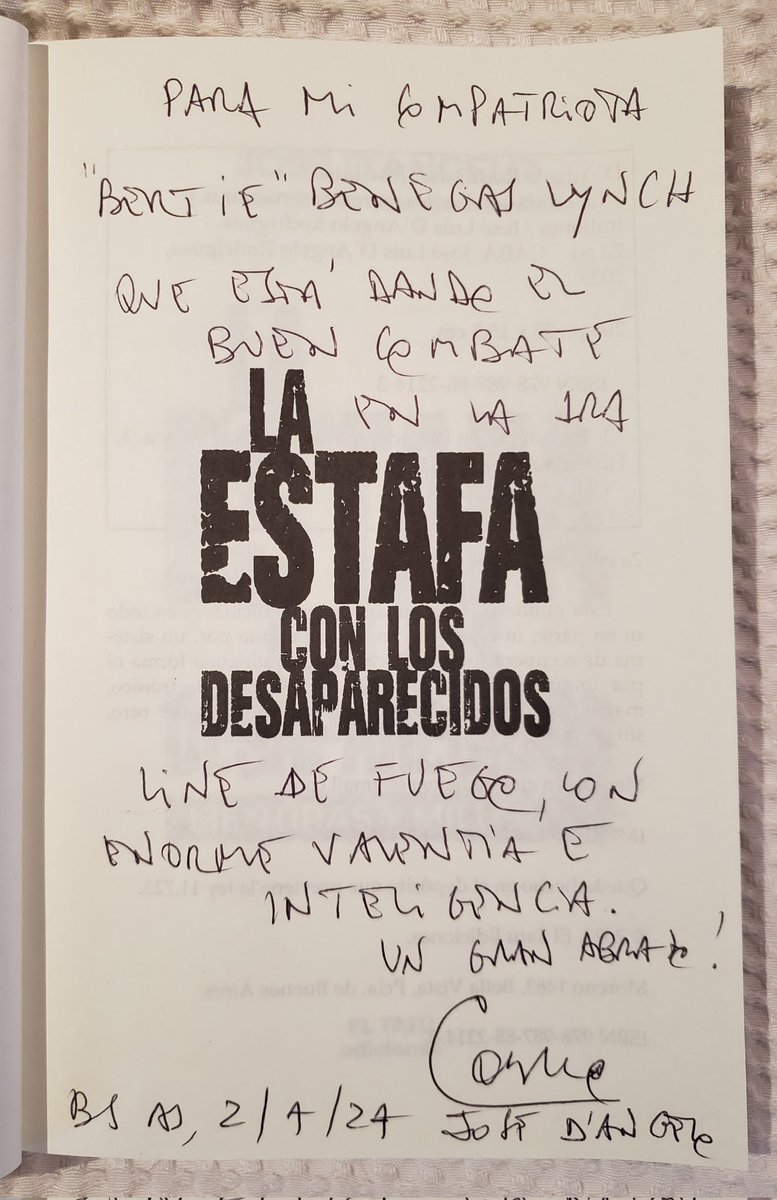 PARA MI COMPATRIOTA
"BERTIE" BENEGAS LYNCH
QUE ESTÁ DANDO EL
BUEN COMBATE
EN LA 1RA
LA
ESTAFA
CON LOS
DESAPARECIDOS
LINE DE FUEGO, CON
ENORME VALENTÍA E
INTELIGENCIA.
UN GRAN ABRAZO!
BS AS, 2/4/24 JOSÉ D'ANGELO